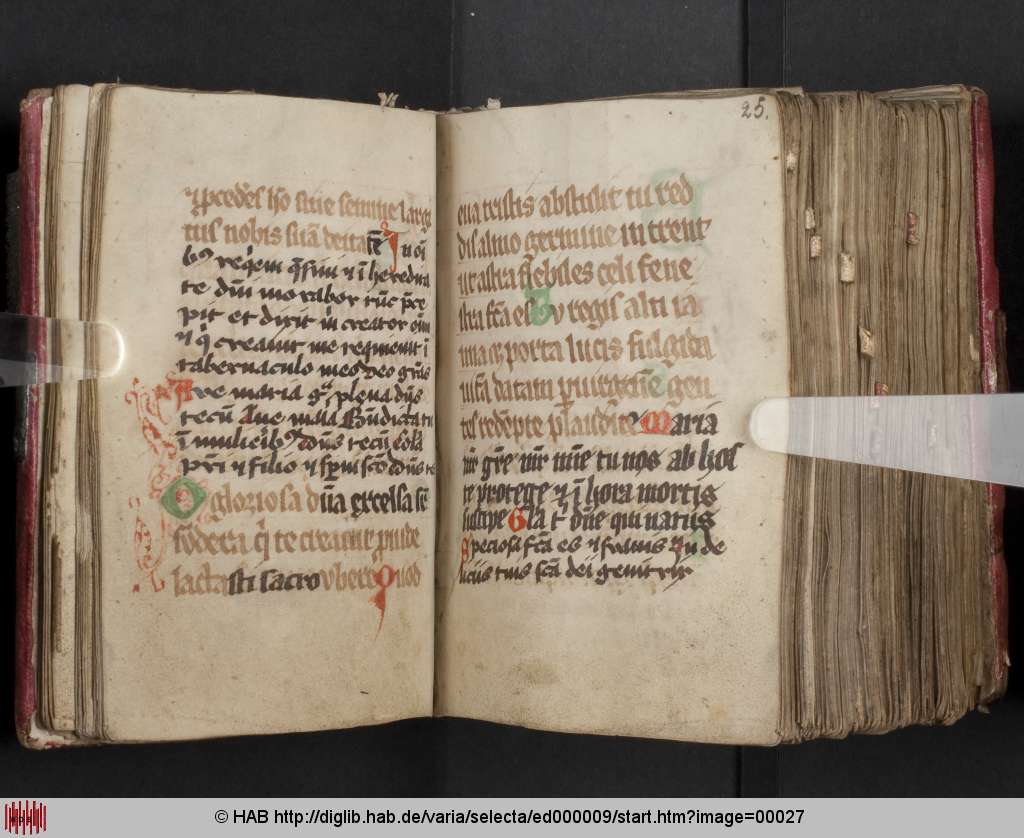 et p̄cedēs hō sine semine larg
tus nobis suā deitatē In oī
bus reqꝫem q̄siui et ī heredita
te dn̄i morabor tūc p̄ce
pit et dixit m̄ creator oīm
et q̇ creauit me requieuit ī
tabernaculo meo deo grās
Aue maria gr̄a plena dn̄s
tecū Aue maria Bn̄dicta tu
ī muliēibꝫ dn̄s tecū Gola
pr̄i et filio et sp̄ui sc̄o dn̄s te
O gloriosa dn̄a excelsa sr̄
sydera q̇ te creauit puide
lactasti sacro vbere Quod
25.
eua tristis abstulit tu red
dis almo germine intrent
ut astra flebiles celi fene
stra fc̄a es Tu regis alti ia
nua et porta lucis fulgida
uitā datam p uirginē gen
tes redēpte plaudite Maria
mr̄ gr̄e mr̄ mīe tu nos ab hos
te protege et ī hora mortis
suscipe Gl̄a t̄ dn̄e qui natus
Speciosa fc̄a es et suauis In de
liciis tuis sc̄a dei genitrix
© HAB http://diglib.hab.de/varia/selecta/ed000009/start.htm?image=00027